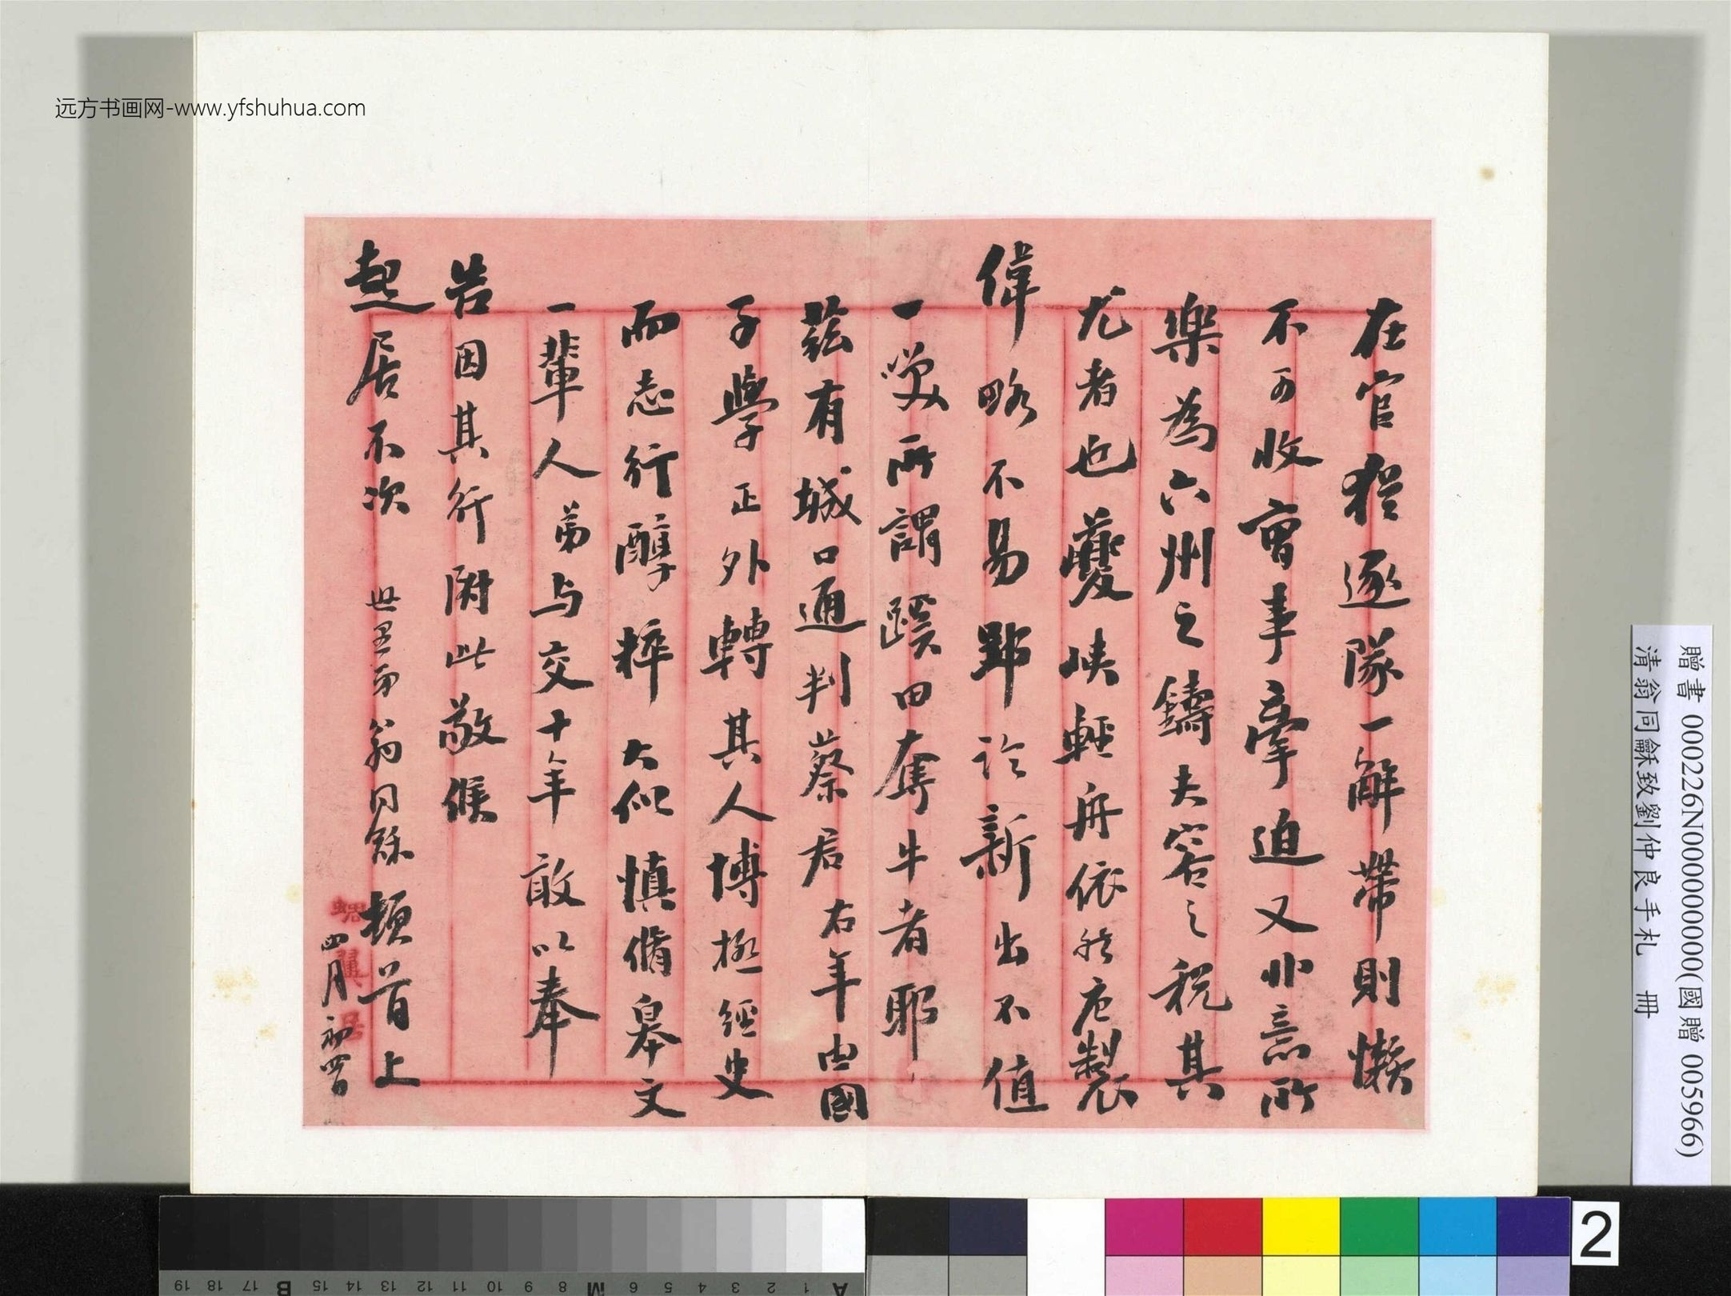 在官猶逐隊一解帶則懶
不可收實事牽迫又非意所
樂為六州之鑄夫容之稅其
尤者也夔峽輕舟依然庀製
偉略不易郢論新出不值
一噱所謂蹊田奪牛者耶
茲有城口通判蔡君右年由國
子學正外轉其人博極經史
而志行醇粹大似慎脩皋文
一輩人弟与交十年敢以奉
告因其行附此敬候
起居不次 世愚弟翁同龢頓首上
四月初四日
贈書 000226N000000000(國贈 005966)
清翁同龢致劉仲良手札 冊
远方书画网-www.yfshuhua.com
2